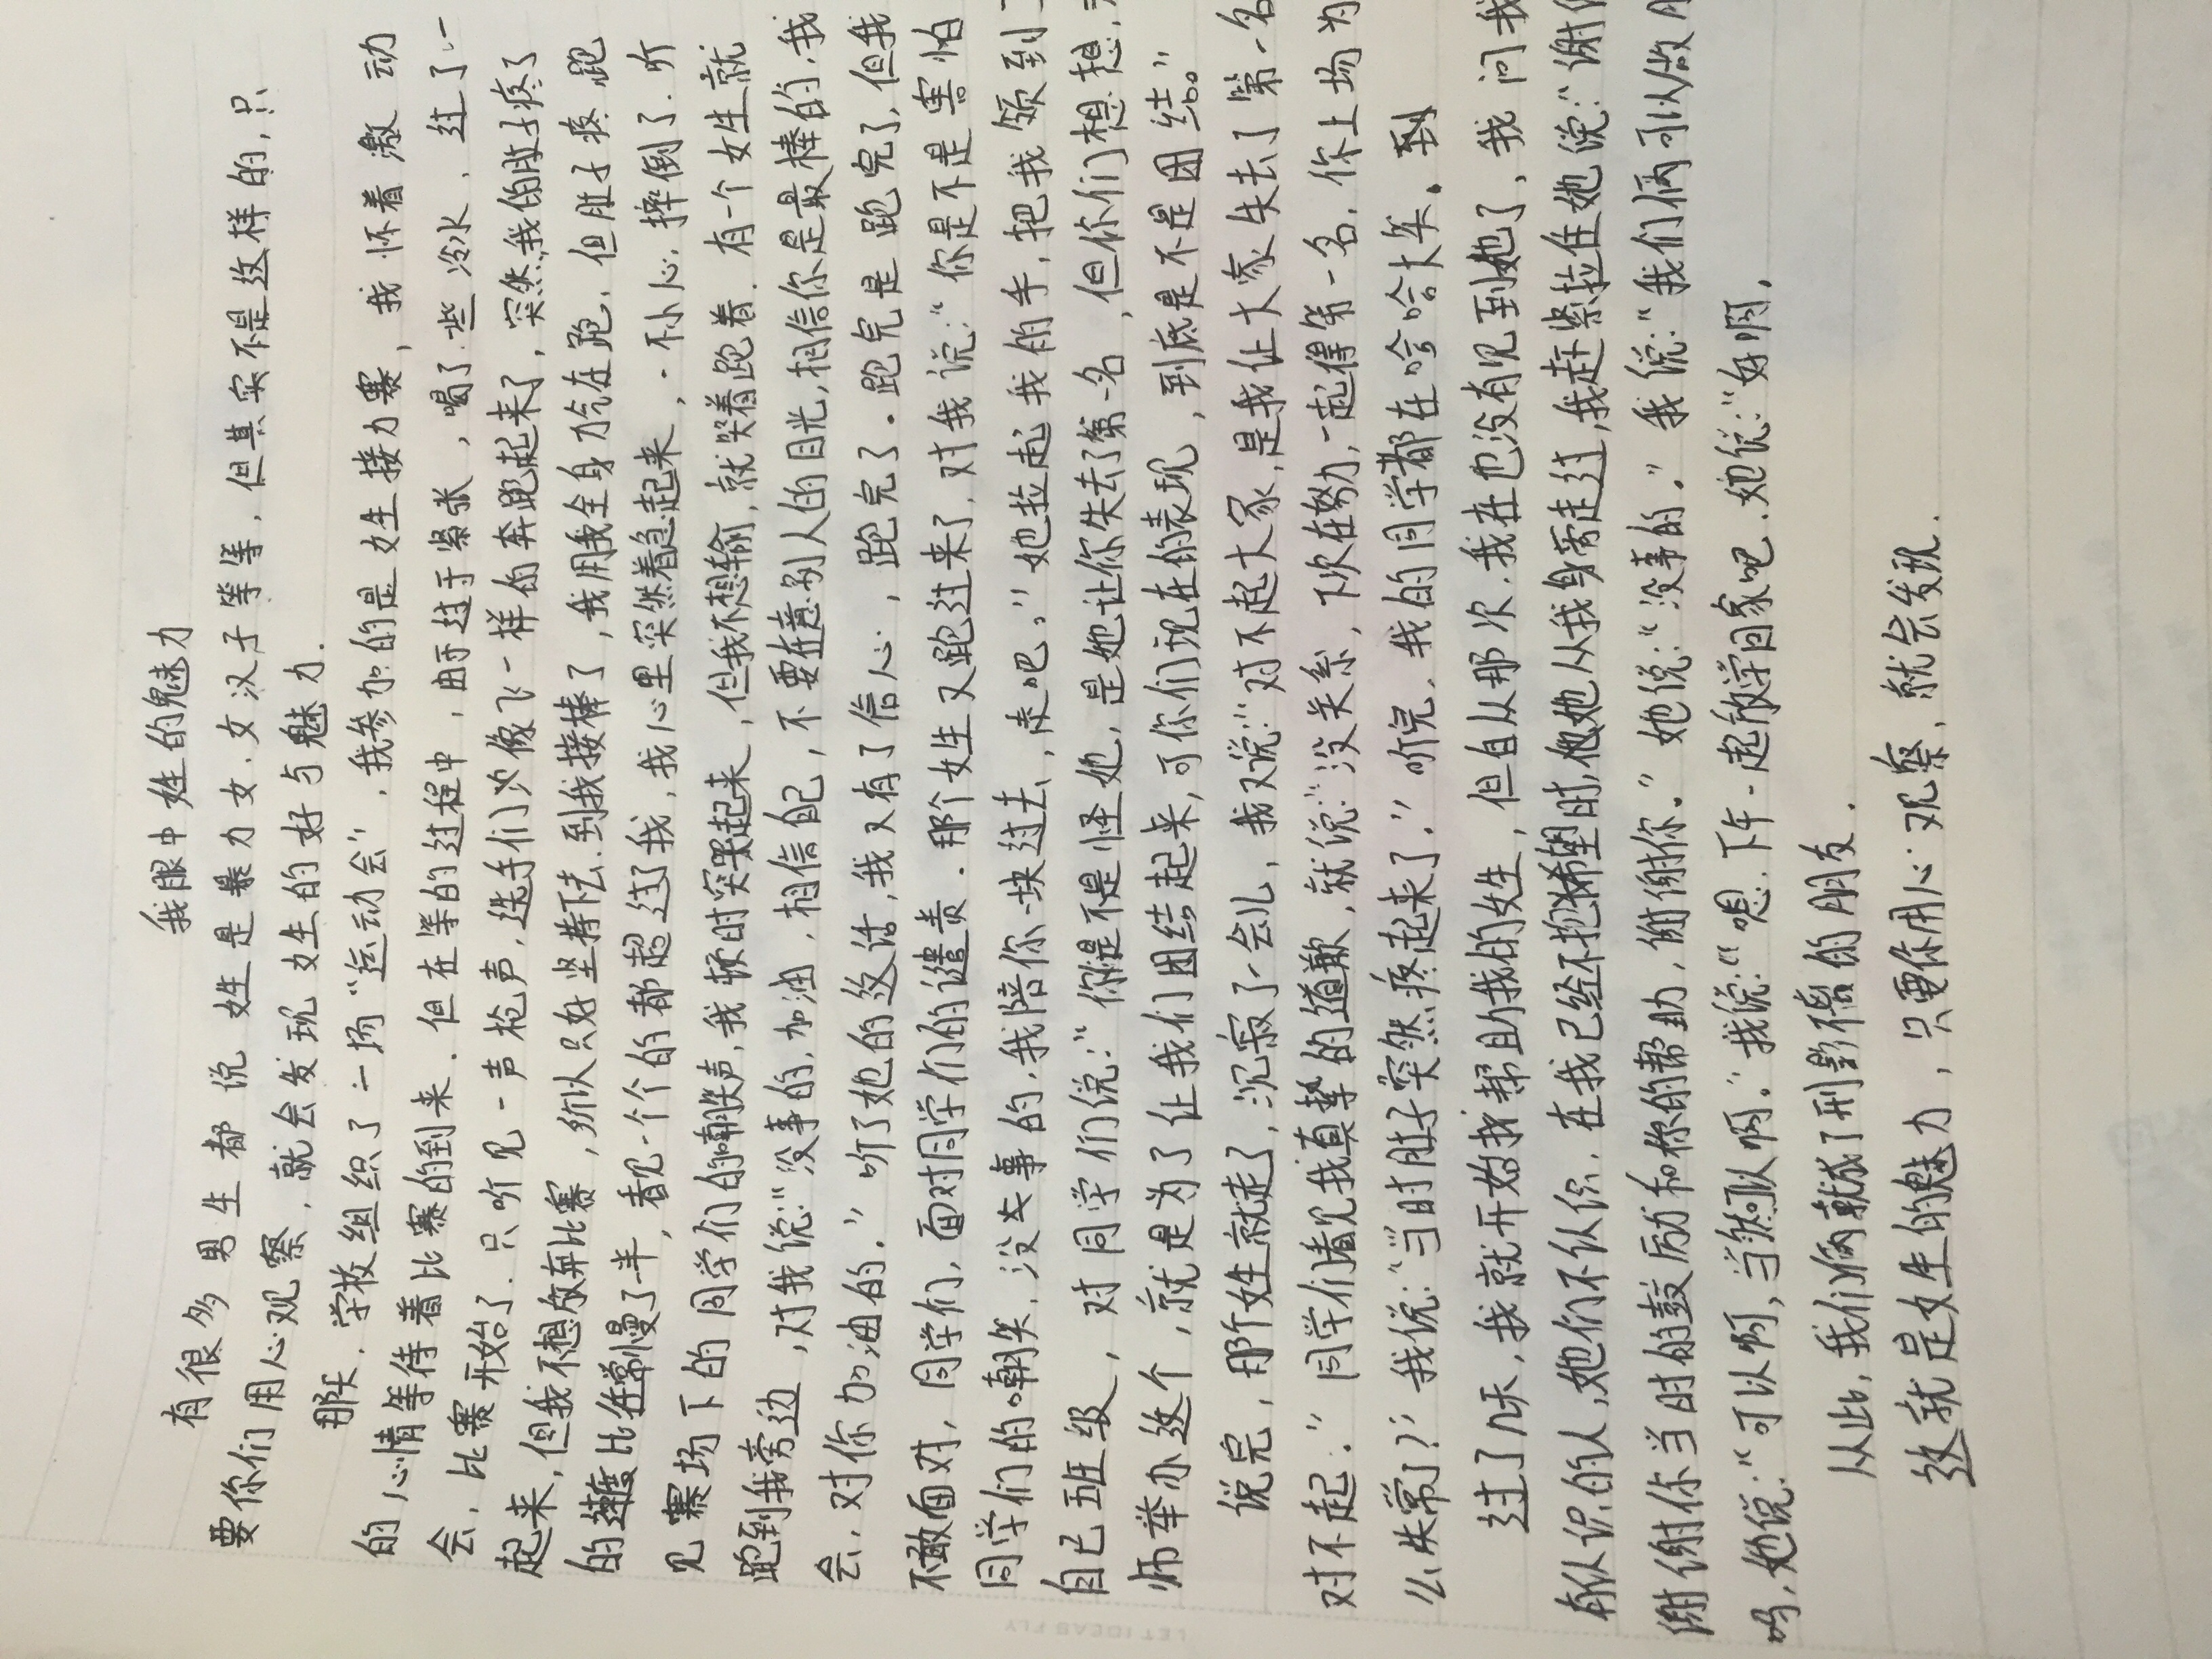 我眼中女生的魅力
有很多男生都说女生是暴力女、女汉子等等,但其实不是这样的,只
要你们用心观察,就会发现女生的好与魅力.
那天,学校组织了一场“运动会”,我参加的是女生接力赛,我怀着激动
的心情等待着比赛的到来.但在等的过程中,由于过于紧张,喝了一些冷水,过了一
会,比赛开始了.只听见一声枪声,选手们像飞一样的奔跑起来了,突然我的肚子疼了
起来,但我不想放弃比赛,所以只好坚持下去.到我接棒了,我用我全身力气在跑,但肚子疼跑
的速度比往常慢了一半,看见一个个的都超过了我,我心里突然着急起来,一不小心,摔倒了.听
见赛场下的同学们的嘲笑声,我顿时哭起来,但我不想输,就哭着跑着.有一个女生就
跑到我旁边,对我说:“没事的,加油,相信自己,不要在意别人的目光,相信你是最棒的,我
会,对你加油的.”听了她的这话,我又有了信心,跑完了.跑完是跑完了,但我
不敢面对,同学们,面对同学们的谴责.那个女生又跑过来了,对我说:“你是不是害怕
同学们的嘲笑,没关事的,我陪你一块过去,走吧。”她拉起我的手,把我领到了
自己班级,对同学们说:“你是不是怪她,是她让你失去了第一名,但你们想想,老
师举办这个,就是为了让我们团结起来,可你们现在的表现,到底是不是团结。”
说完,那个女生就走了,沉寂了一会儿,我又说:“对不起大家,是我让大家失去了第一名
对不起.”同学们看见我真挚的道歉,就说:“没关系,下次在努力,一起得第一名,你上场为
么失常了?”我说:“当时肚子突然疼起来了.”听完,我的同学都在哈哈大笑.
过了几天,我就开始找帮助我的女生,但自从那次,我在也没有见到她了,我问我
有认识的人,她们不认识,在我已经不抱希望时,她从我身旁走过,我赶紧拉住她说:“谢
谢谢你当时的鼓励和你的帮助,谢谢你.”她说:“没事的.”我说:“我们俩可以做朋
吗,她说:“可以啊,当然可以啊.”我说:“嗯.下午一起放学回家吧.她说:“好啊.
从此,我们俩就成了形影不离的朋友.
这就是女生的魅力,只要你用心观察,就会发现.
LET IDEAS FLY